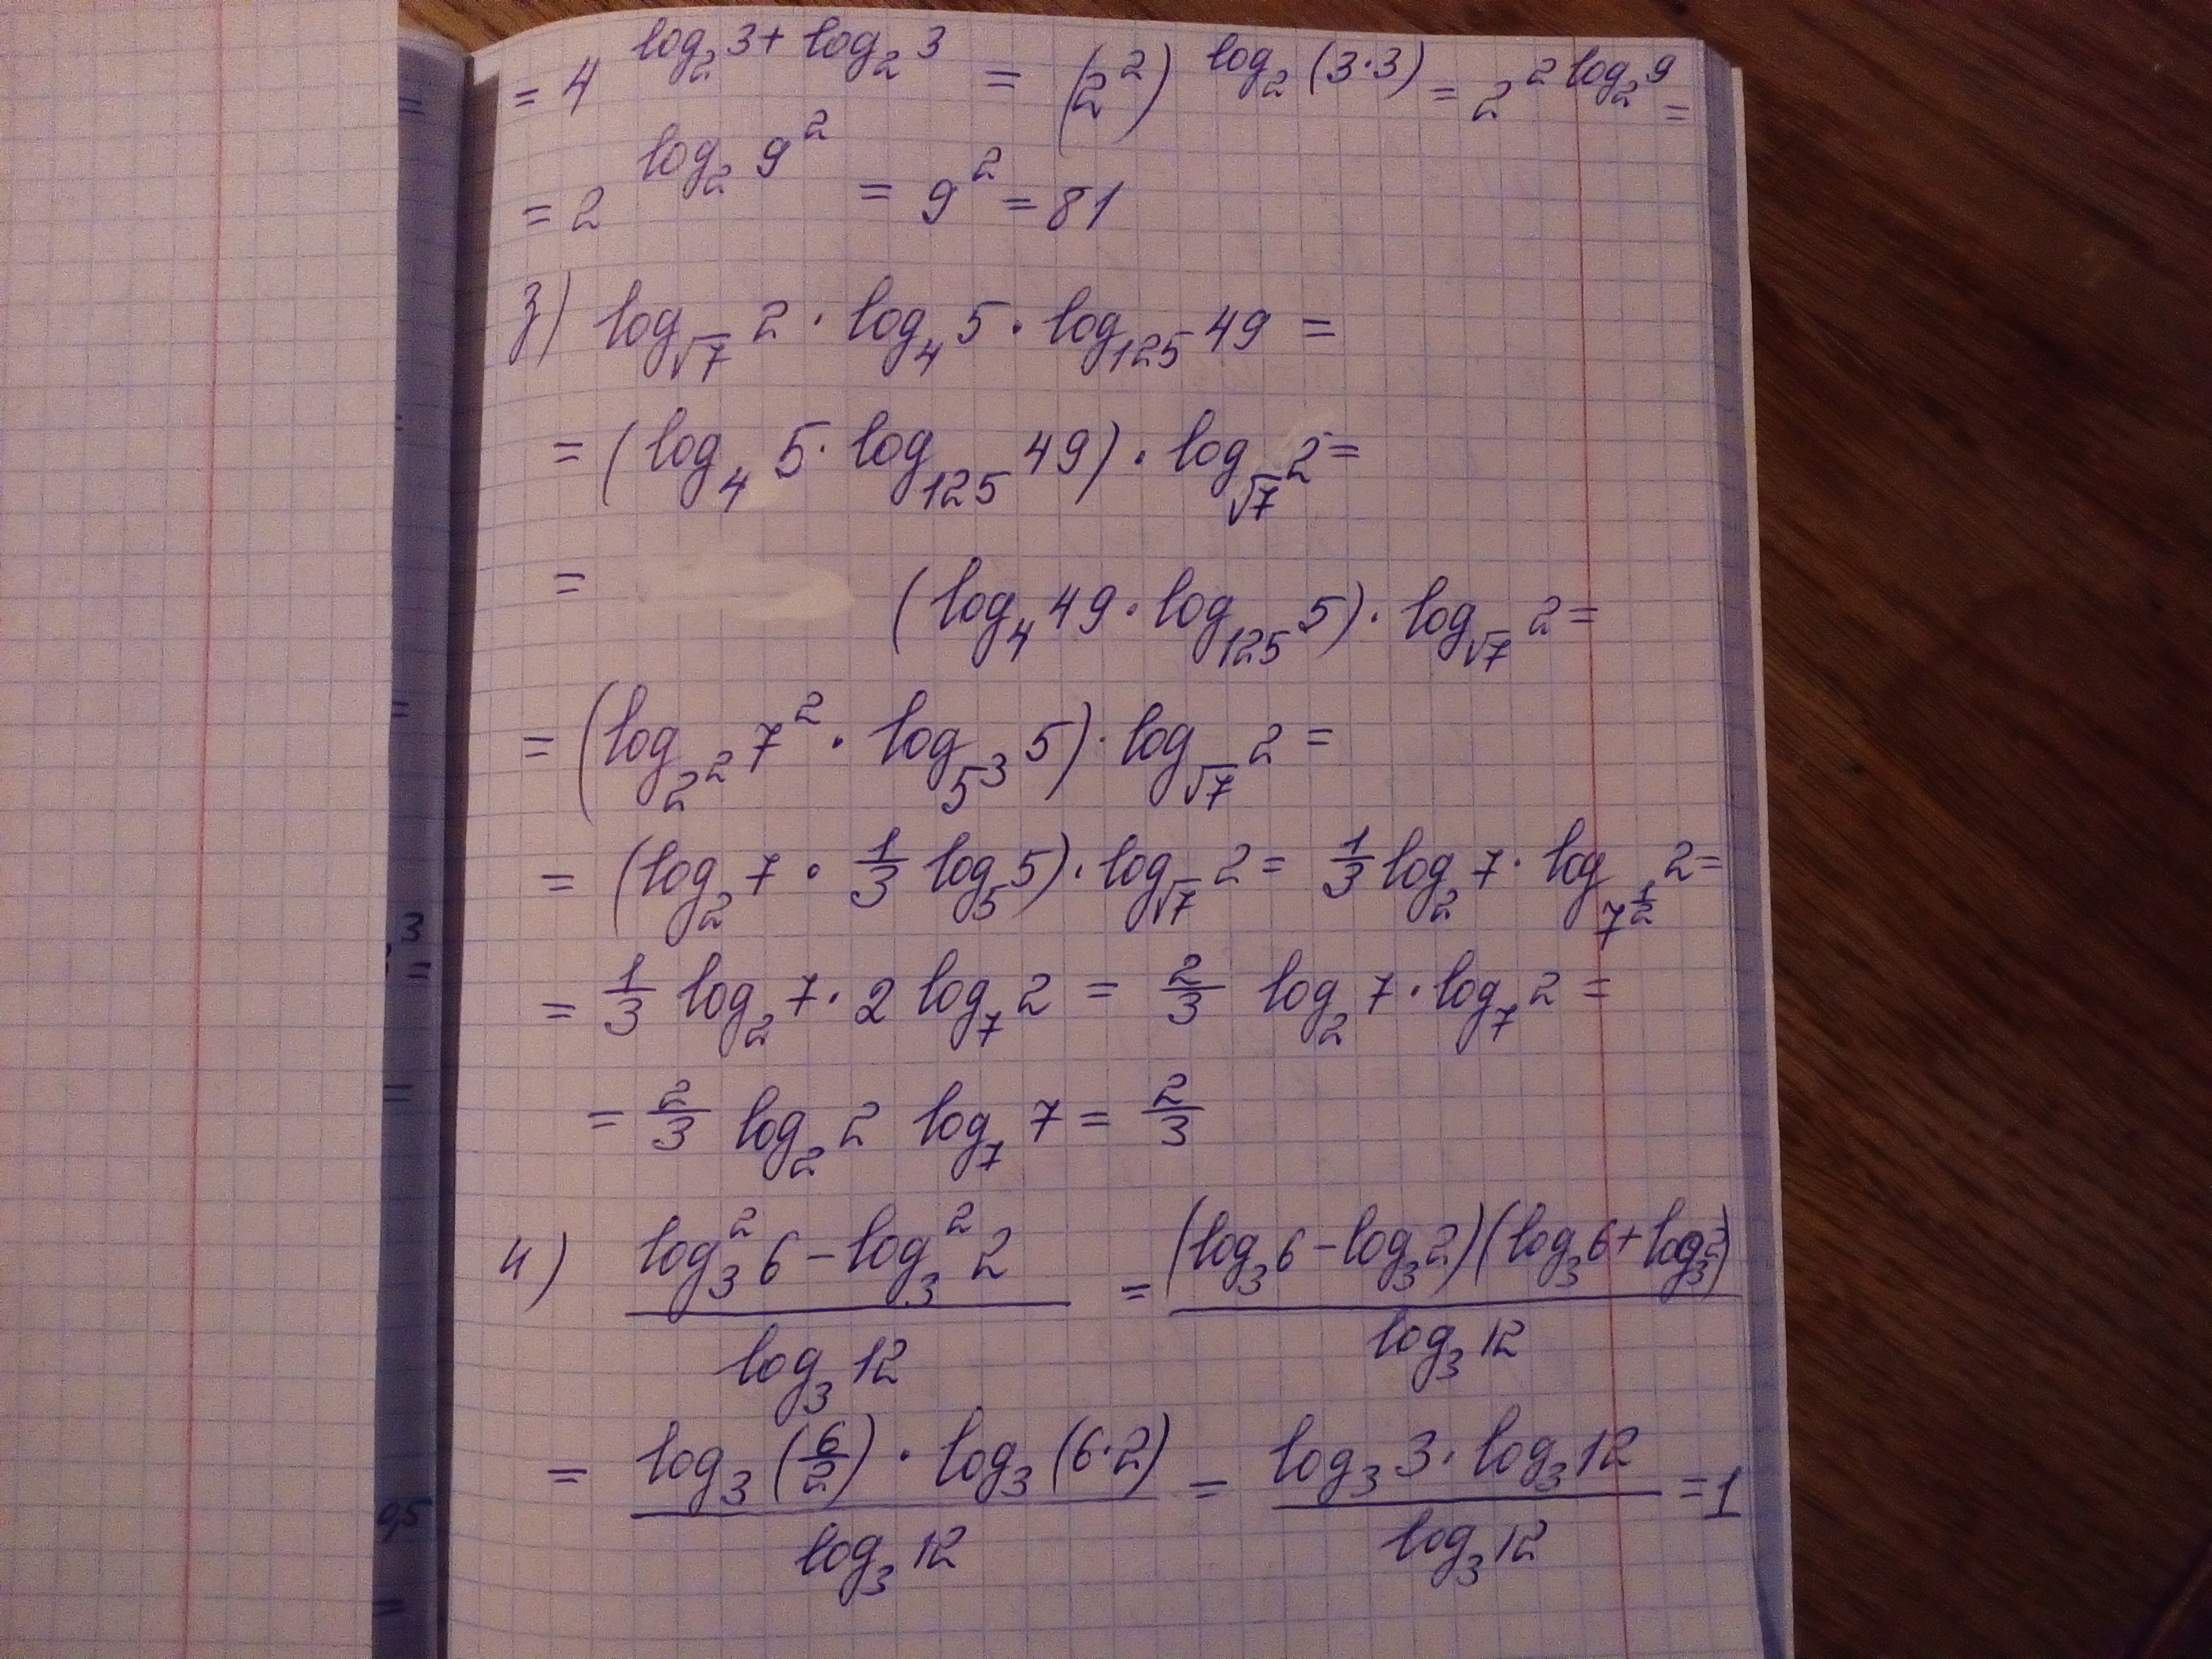 = 4^{log₂ 3 + log₂ 3} = (2²)^{log₂ (3·3)} = 2^{2 log₂ 9} =
= 2^{log₂ 9²} = 9² = 81
з) log_{√7} 2 · log₄ 5 · log₁₂₅ 49 =
= (log₄ 5 · log₁₂₅ 49) · log_{√7} 2 =
= (log₄ 49 · log₁₂₅ 5) · log_{√7} 2 =
= (log_{2²} 7² · log_{5³} 5) · log_{√7} 2 =
= (log₂ 7 · 1/3 log₅ 5) · log_{√7} 2 = 1/3 log₂ 7 · log_{7^{1/2}} 2 =
= 1/3 log₂ 7 · 2 log₇ 2 = 2/3 log₂ 7 · log₇ 2 =
= 2/3 log₂ 2 log₇ 7 = 2/3
и) (log₃² 6 − log₃² 2) / (log₃ 12) = ((log₃ 6 − log₃ 2)(log₃ 6 + log₃ 2)) / (log₃ 12)
= (log₃ (6/2) · log₃ (6·2)) / (log₃ 12) = (log₃ 3 · log₃ 12) / (log₃ 12) = 1